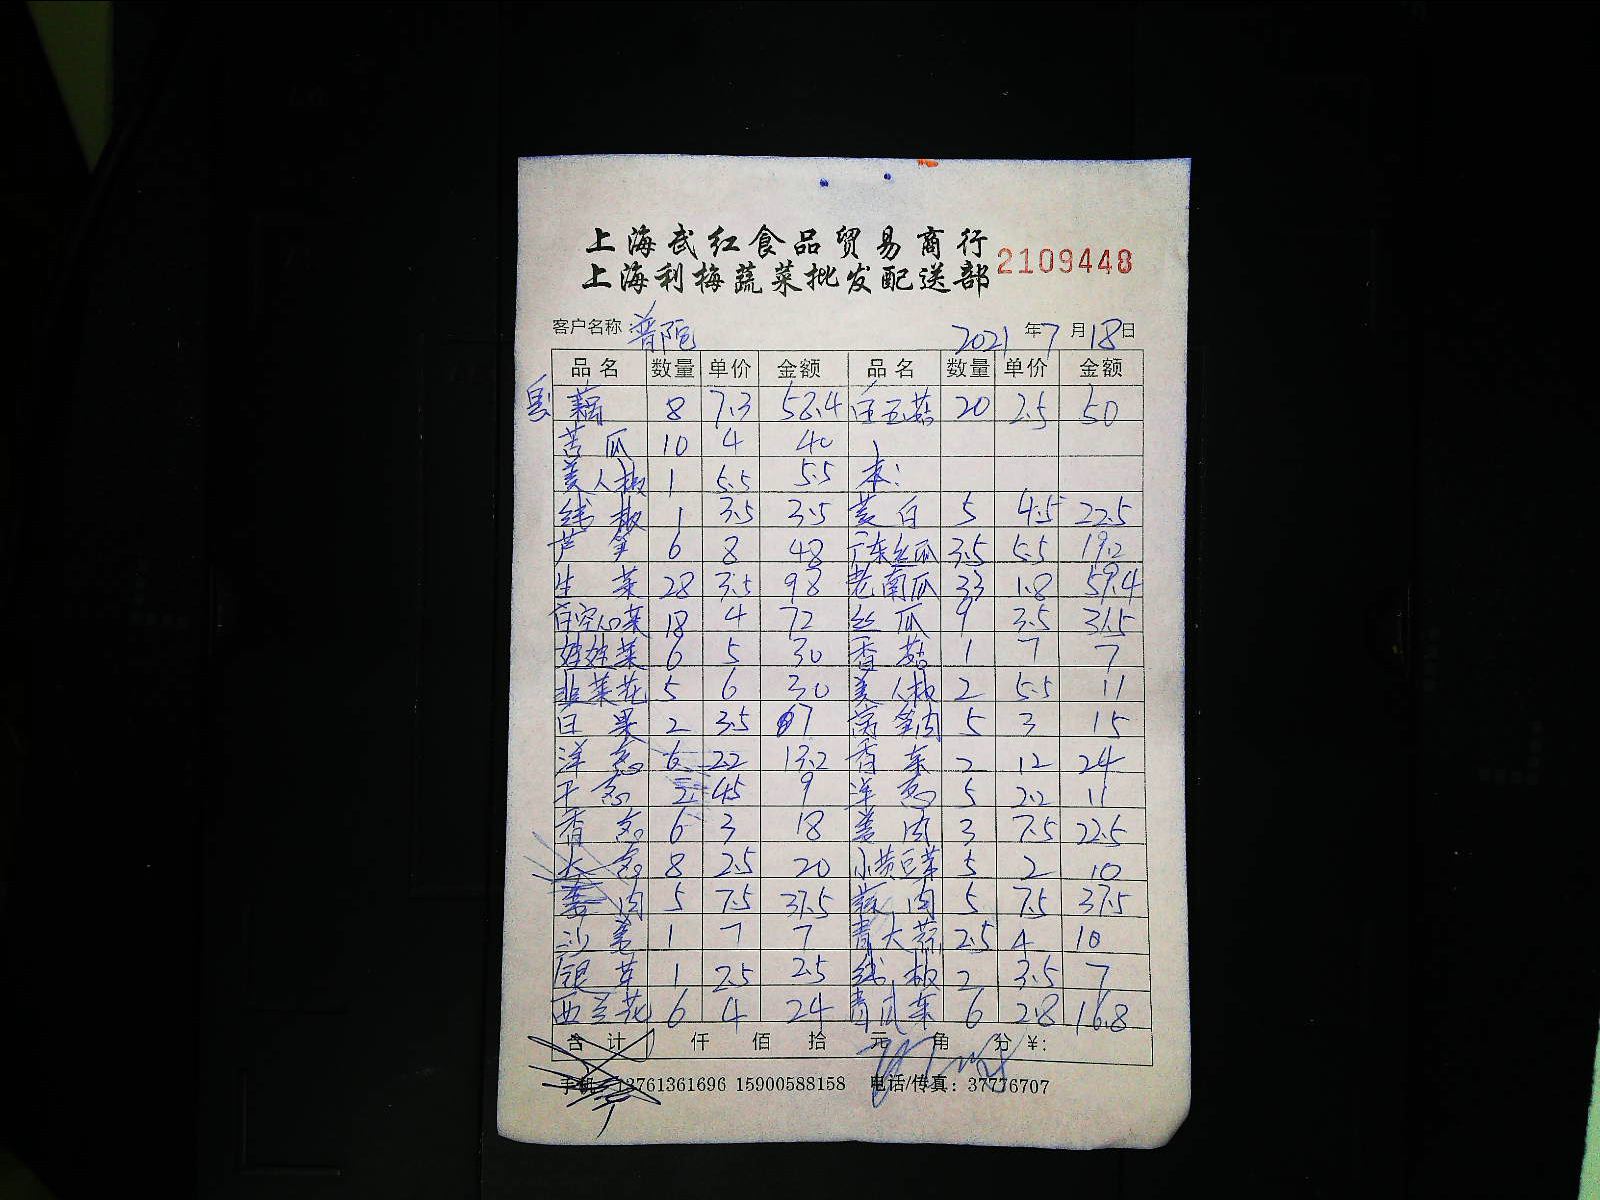 上海武红食品贸易商行
上海利梅蔬菜批发配送部 2109448
客户名称：普陀 2021年7月18日
品名 数量 单价 金额 品名 数量 单价 金额
藕 8 7.3 58.4 白玉菇 20 2.5 50
苦瓜 10 4 40
美人椒 1 5.5 5.5 本：
线椒 1 3.5 3.5 茭白 5 4.5 22.5
芦笋 6 8 48 广东丝瓜 3.5 5.5 19.2
生菜 28 3.5 98 老南瓜 33 1.8 59.4
白空心菜 18 4 72 丝瓜 9 3.5 31.5
娃娃菜 6 5 30 香菇 1 7 7
韭菜花 5 6 30 美人椒 2 5.5 11
白果 2 3.5 7 莴 肉 5 3 15
洋葱 6 2.2 13.2 香菜 2 12 24
干葱 2 4.5 9 洋葱 5 2.2 11
香葱 6 3 18 姜肉 3 7.5 22.5
大葱 8 2.5 20 小黄豆芽 5 2 10
姜肉 5 7.5 37.5 蒜肉 5 7.5 37.5
沙姜 1 7 7 青大蒜 2.5 4 10
银芽 1 2.5 2.5 线椒 2 3.5 7
西兰花 6 4 24 青 菜 6 2.8 16.8
合计 仟 佰 拾 元 角 分 ￥：
手机：13761361696 15900588158 电话/传真：37776707